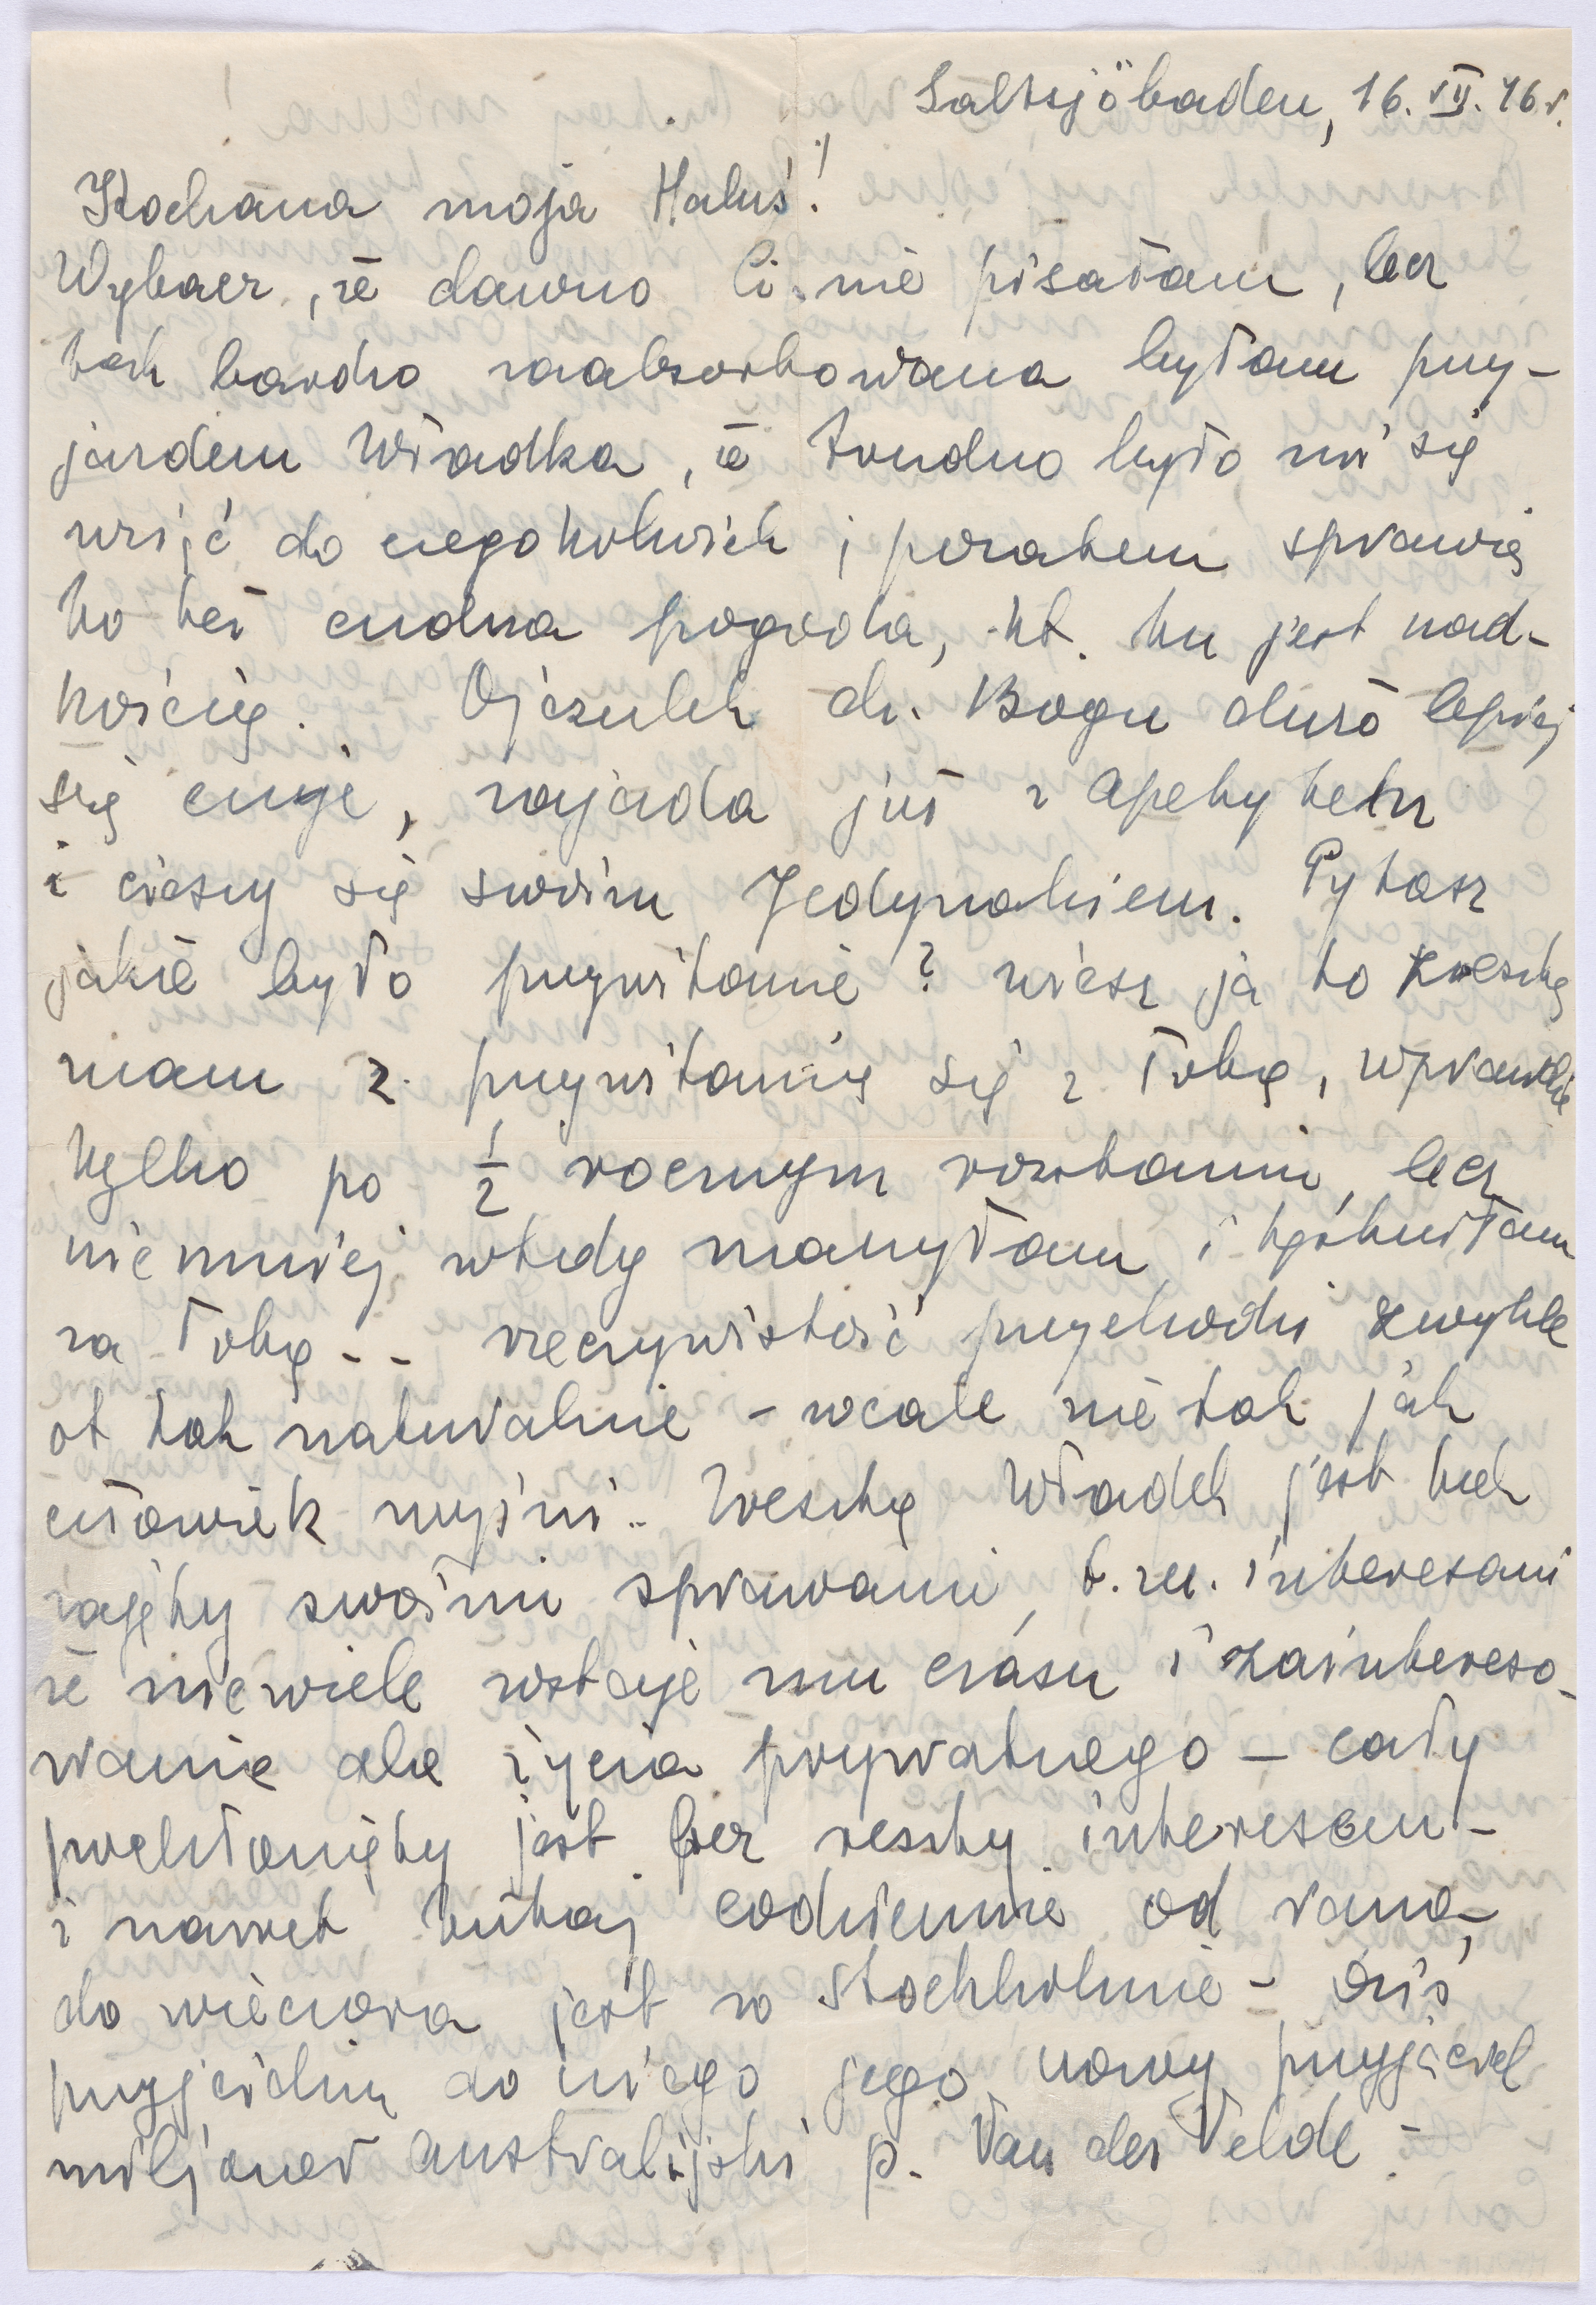 Saltsjöbaden, 16. VII. 46 r.
Kochana moja Haluś!
Wybacz, że dawno Ci nie pisałam, lecz
tak bardzo zaabsorbowana byłam przy-
jazdem Władka, że trudno było mi się
wziąć do czegokolwiek i pozatem sprawia
to też cudna pogoda, kt. tu jest nad-
kością. Ojczulek dz. Bogu dużo lepiej
się czuje, zajada już z apetytem
i cieszy się swoim Jedynakiem. Pytasz
jakie było przywitanie? wiesz ja to zresztą
mam z przywitania się z Tobą, wprawdzie
tylko po ½ rocznym rozstaniu, lecz
niemniej wtedy marzyłam i tęskniłam
za Tobą -- rzeczywistość przychodzi zwykle
ot tak naturalnie - wcale nie tak jak
człowiek myśni.. Zresztą Władek jest tak
zajęty swoimi sprawami, t.zn. interesami
że niewiele zostaje mu czasu i zaintereso-
wanie dla życia prywatnego - cały
pochłonięty jest bez reszty interesem -
i nawet tutaj codziennie od rana,
do wieczora jest w Stockholmie - dziś
przyjeżdża do niego jego nowy przyjaciel
miljoner australijski p. Van der Velde -